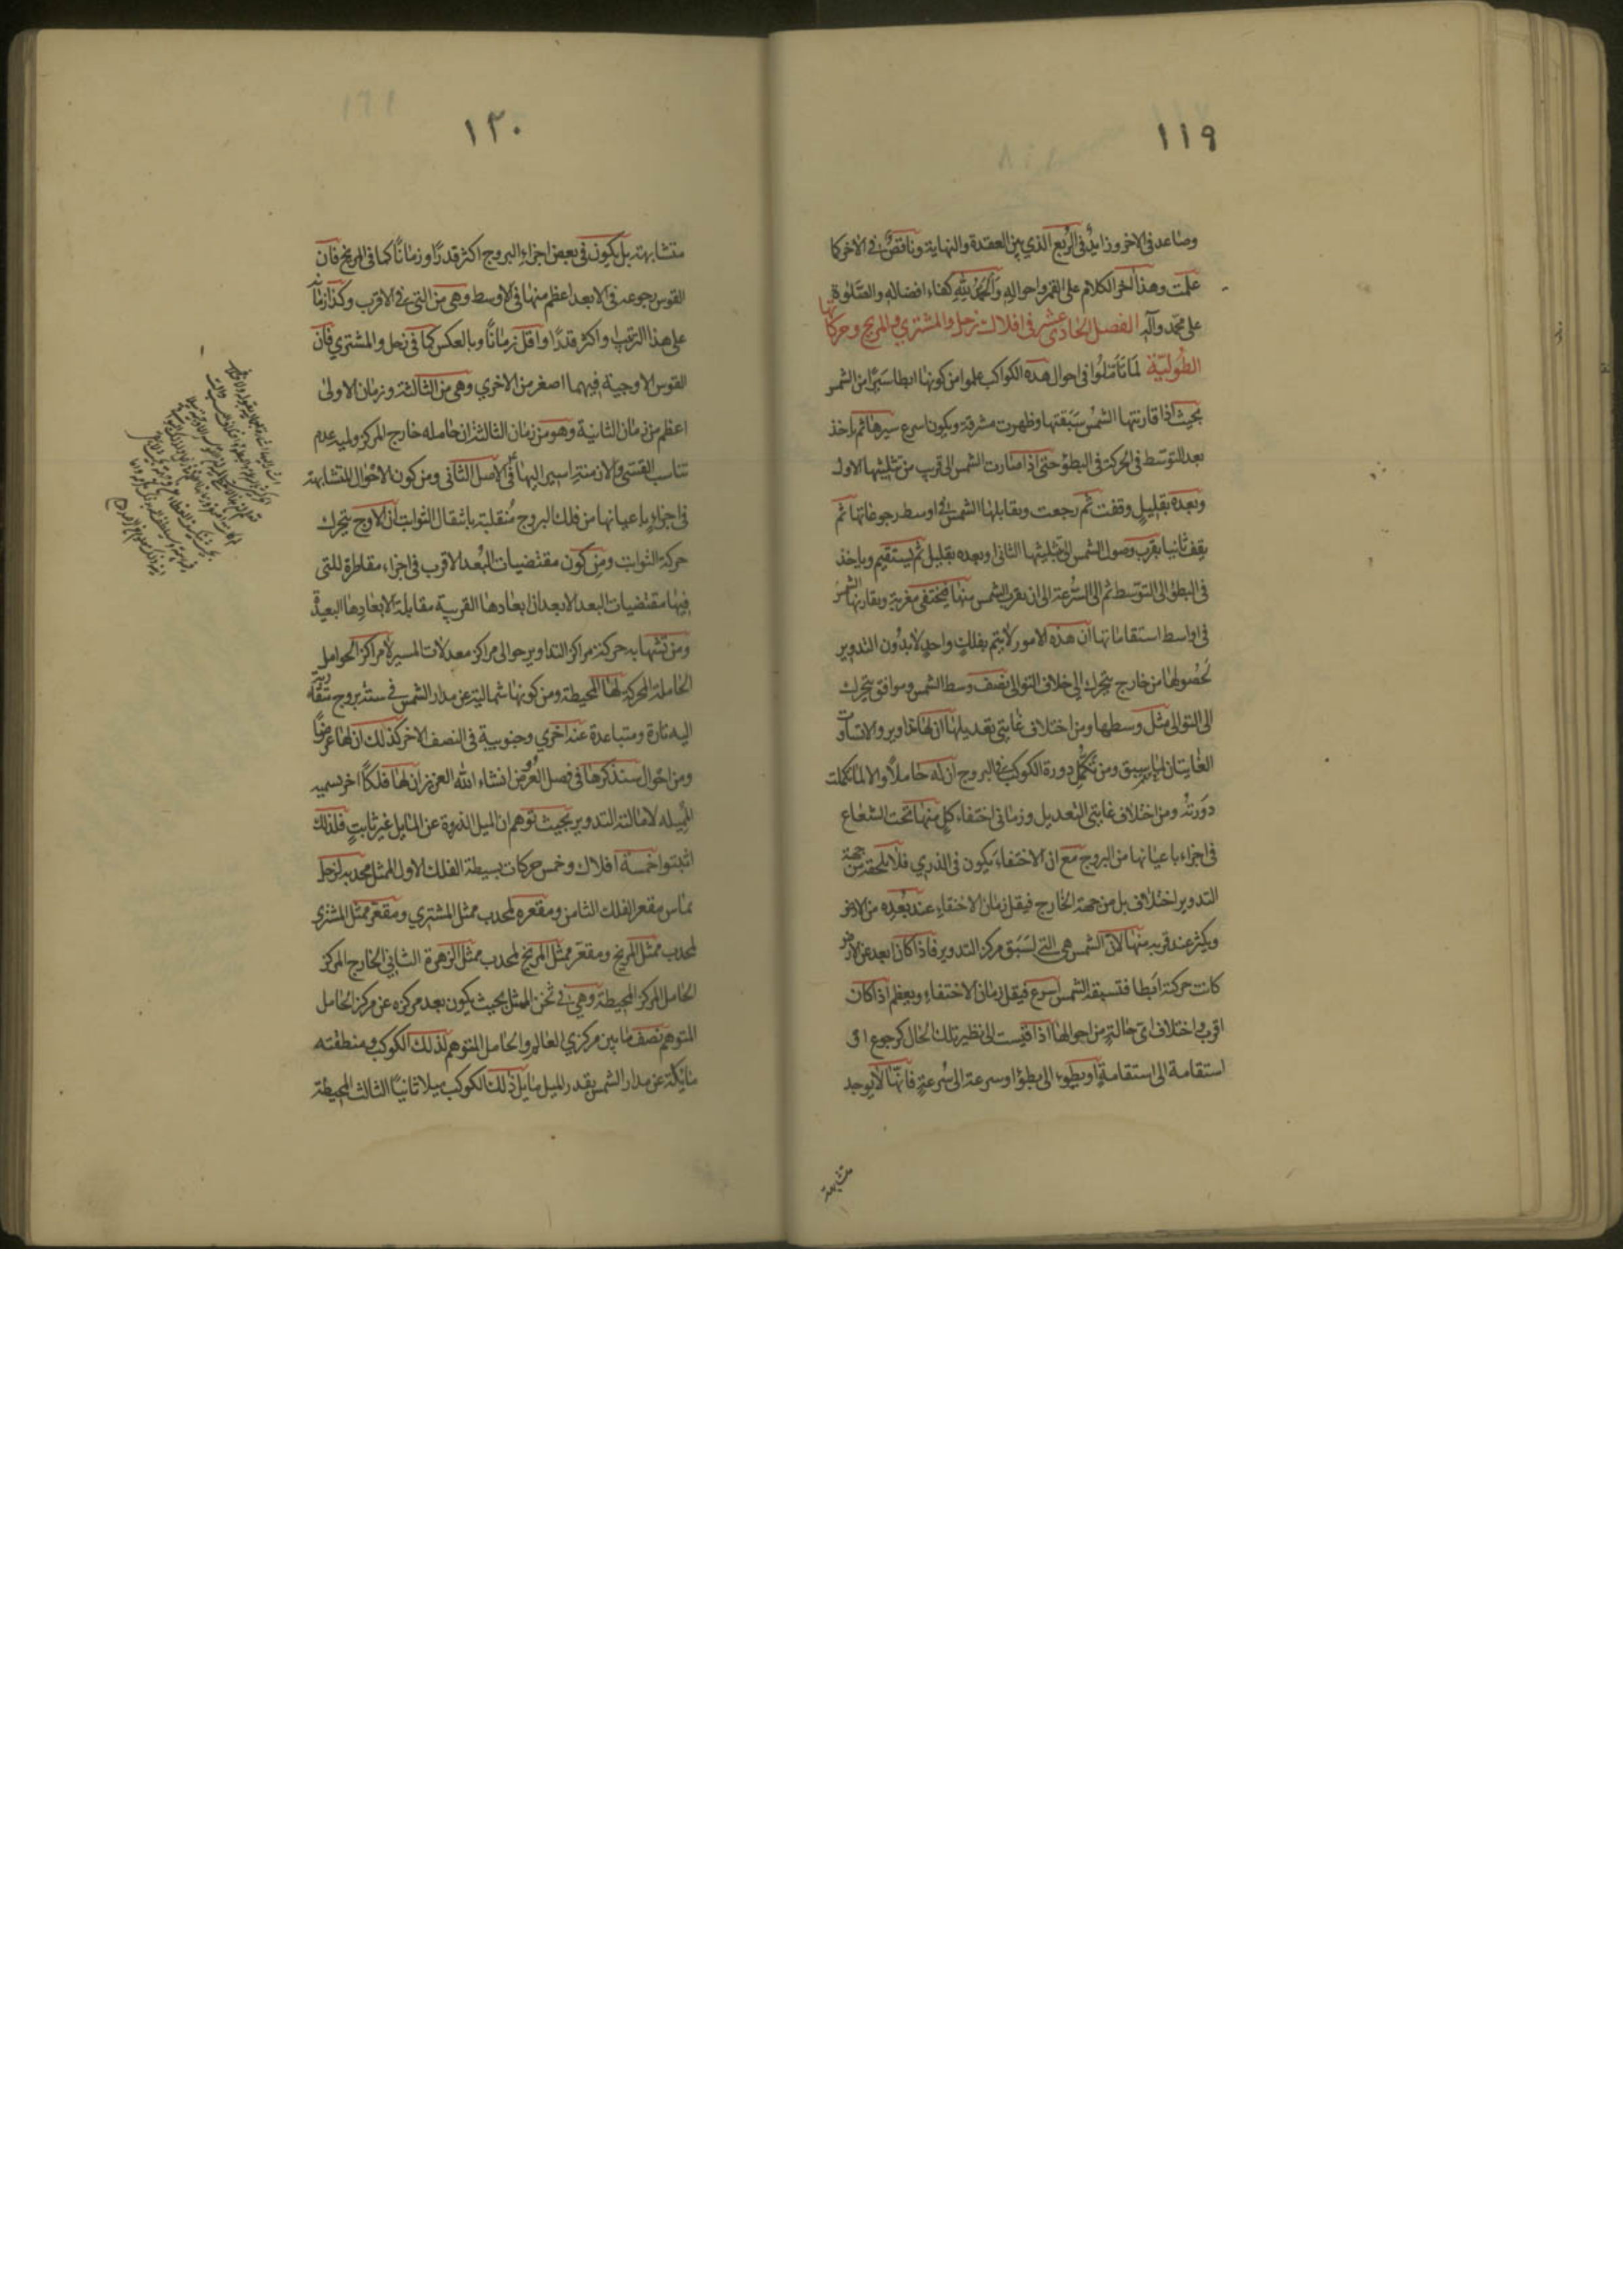 ١١٩
وصاعد في الاخر وزايد في الربع الذي بين العقدة والنهاية وناقص في الاخر كما
علمت وهذا آخر الكلام على القمر واحواله والحمد لله كفاء افضاله والصلوة
على محمد وآله الفصل الحادي عشر في افلاك زحل والمشتري والمريخ وحركاتها
الطولية لما تأملوا في احوال هذه الكواكب علموا من كونها ابطأ سيرا من الشمس
بحيث اذا قارنتها الشمس سبقتها وظهرت مشرقة ويكون اسرع سيرها ثم ياخذ
بعد التوسط في الحركة في البطؤ حتى اذا صارت الشمس الى قرب من تثليثها الاول
وبعده بقليل وقفت ثم رجعت ويقابلها الشمس في اوسط رجوعاتها ثم
يقف ثانيا بقرب وصول الشمس الى تثليثها الثاني وبعده بقليل ثم يستقيم وياخذ
في البطؤ الى التوسط ثم الى السرعة الى ان يقرب الشمس منها فيختفي مغربة ويقارنها الشمس
في اواسط استقاماتها ان هذه الامور لا يتم بفلك واحد لا بدون التدوير
لحصولها من خارج يتحرك الى خلاف التوالى نصف وسط الشمس وموافق يتحرك
الى التوالى مثل وسطها ومن اختلاف غايتي تعديلها ان لها تداوير والا تساوت
الغايتان لما سبق ومن تكمل دورة الكوكب في البروج ان له حاملا والا لما تكملت
دورته ومن اختلاف غايتي التعديل وزماني اختفاء كل منها تحت الشعاع
في اجزاء باعيانها من البروج مع ان الاختفاء يكون في الذري فلا يلحقه من جهة
التدوير اختلاف بل من جهة الخارج فيقل زمان الاختفاء عند بعده من الارض
ويكثر عند قربه منها لان الشمس هي التي تسبق مركز التدوير فاذا كان ابعد عن الارض
كانت حركته ابطا فتسبقه الشمس اسرع فيقل زمان الاختفاء ويعظم اذا كان
اقرب واختلاف اى حالة من احوالها اذا قيست الى نظير تلك الحال كرجوع او
استقامة الى استقامة او بطوء الى بطؤ او سرعة الى سرعة فانها لا يوجد
متشابهة
١٢٠
متشابهة بل يكون في بعض اجزاء البروج اكثر قدرا وزمانا كما في المريخ فان
القوس رجوعه في الابعد اعظم منها في الاوسط وهي من التي في الاقرب وكذا زمانا
على هذا الترتيب او اكثر قدرا واقل زمانا وبالعكس كما في زحل والمشتري فان
القوس الاوجية فيهما اصغر من الاخري وهي من الثالثة وزمان الاولى
اعظم من زمان الثانية وهو من زمان الثالثة ان حامله خارج المركز وليه عدم
تناسب القسي والازمنة اسير اليها في الاصل الثاني ومن كون الاحوال المتشابهة
في اجزاء باعيانها من فلك البروج منقلبة بانتقال الثوابت ان الاوج يتحرك
حركة الثوابت ومن كون مقتضيات البعد الاقرب في اجزاء مقاطرة للتى
فيها مقتضيات البعد الابعد ان ابعادها القريبة مقابلة لابعادها البعيدة
ومن تشابه حركة مراكز التداوير حوالى مراكز معدلات المسير لا مراكز الحوامل
الحاملة المحركة لها المحيطة ومن كونها شمالية عن مدار الشمس في ستة بروج متقاربة
اليه تارة ومتباعدة عنه اخري وجنوبية في النصف الاخر كذلك ان لها عرضا
ومن احوال ستذكرها في فصل العروض انشاء الله العزيز ان لها فلكا اخر نسميه
المميله لامالته التدوير بحيث توهم ان الميل الذروة عن المايل غير ثابت فلذلك
اثبتوا خمسة افلاك وخمس حركات بسيطة الفلك الاول الممثل محدبه لزحل
يماس مقعر الفلك الثامن ومقعره لمحدب ممثل المشتري ومقعر ممثل المشتري
لمحدب ممثل المريخ ومقعر ممثل المريخ لمحدب ممثل الزهرة الثاني الخارج المركز
الحامل لمركز المحيطة وهي في ثخن الممثل بحيث يكون بعد مركزه عن مركز الحامل
المتوهم نصف ما بين مركزي العالم والحامل المتوهم لذلك الكوكب ومنطقته
مايلة عن مدار الشمس بقدر الميل مايل ذلك الكوكب ميلا ثانيا الثالث المحيطة